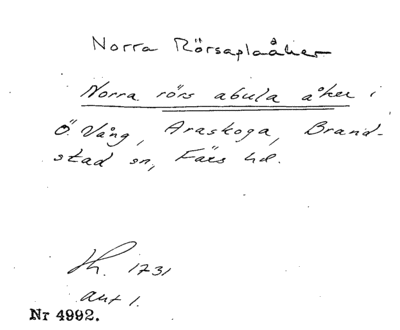 Norra Rörsaplaåker
Norra rörs abula åker i
Ö. Vång, Araskoga, Brand-
stad sn, Färs hd.
Lh. 1731
akt 1.
Nr 4992.